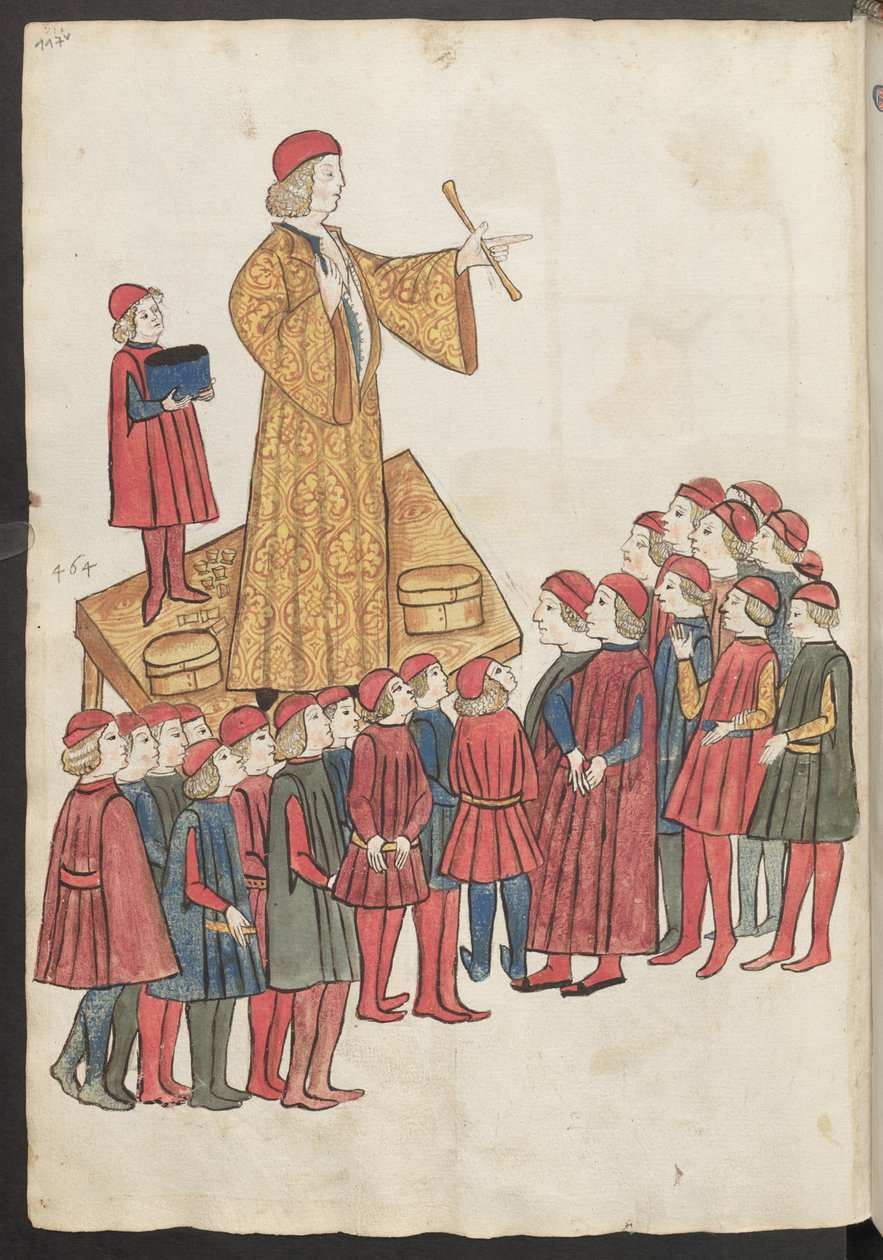 117v
464